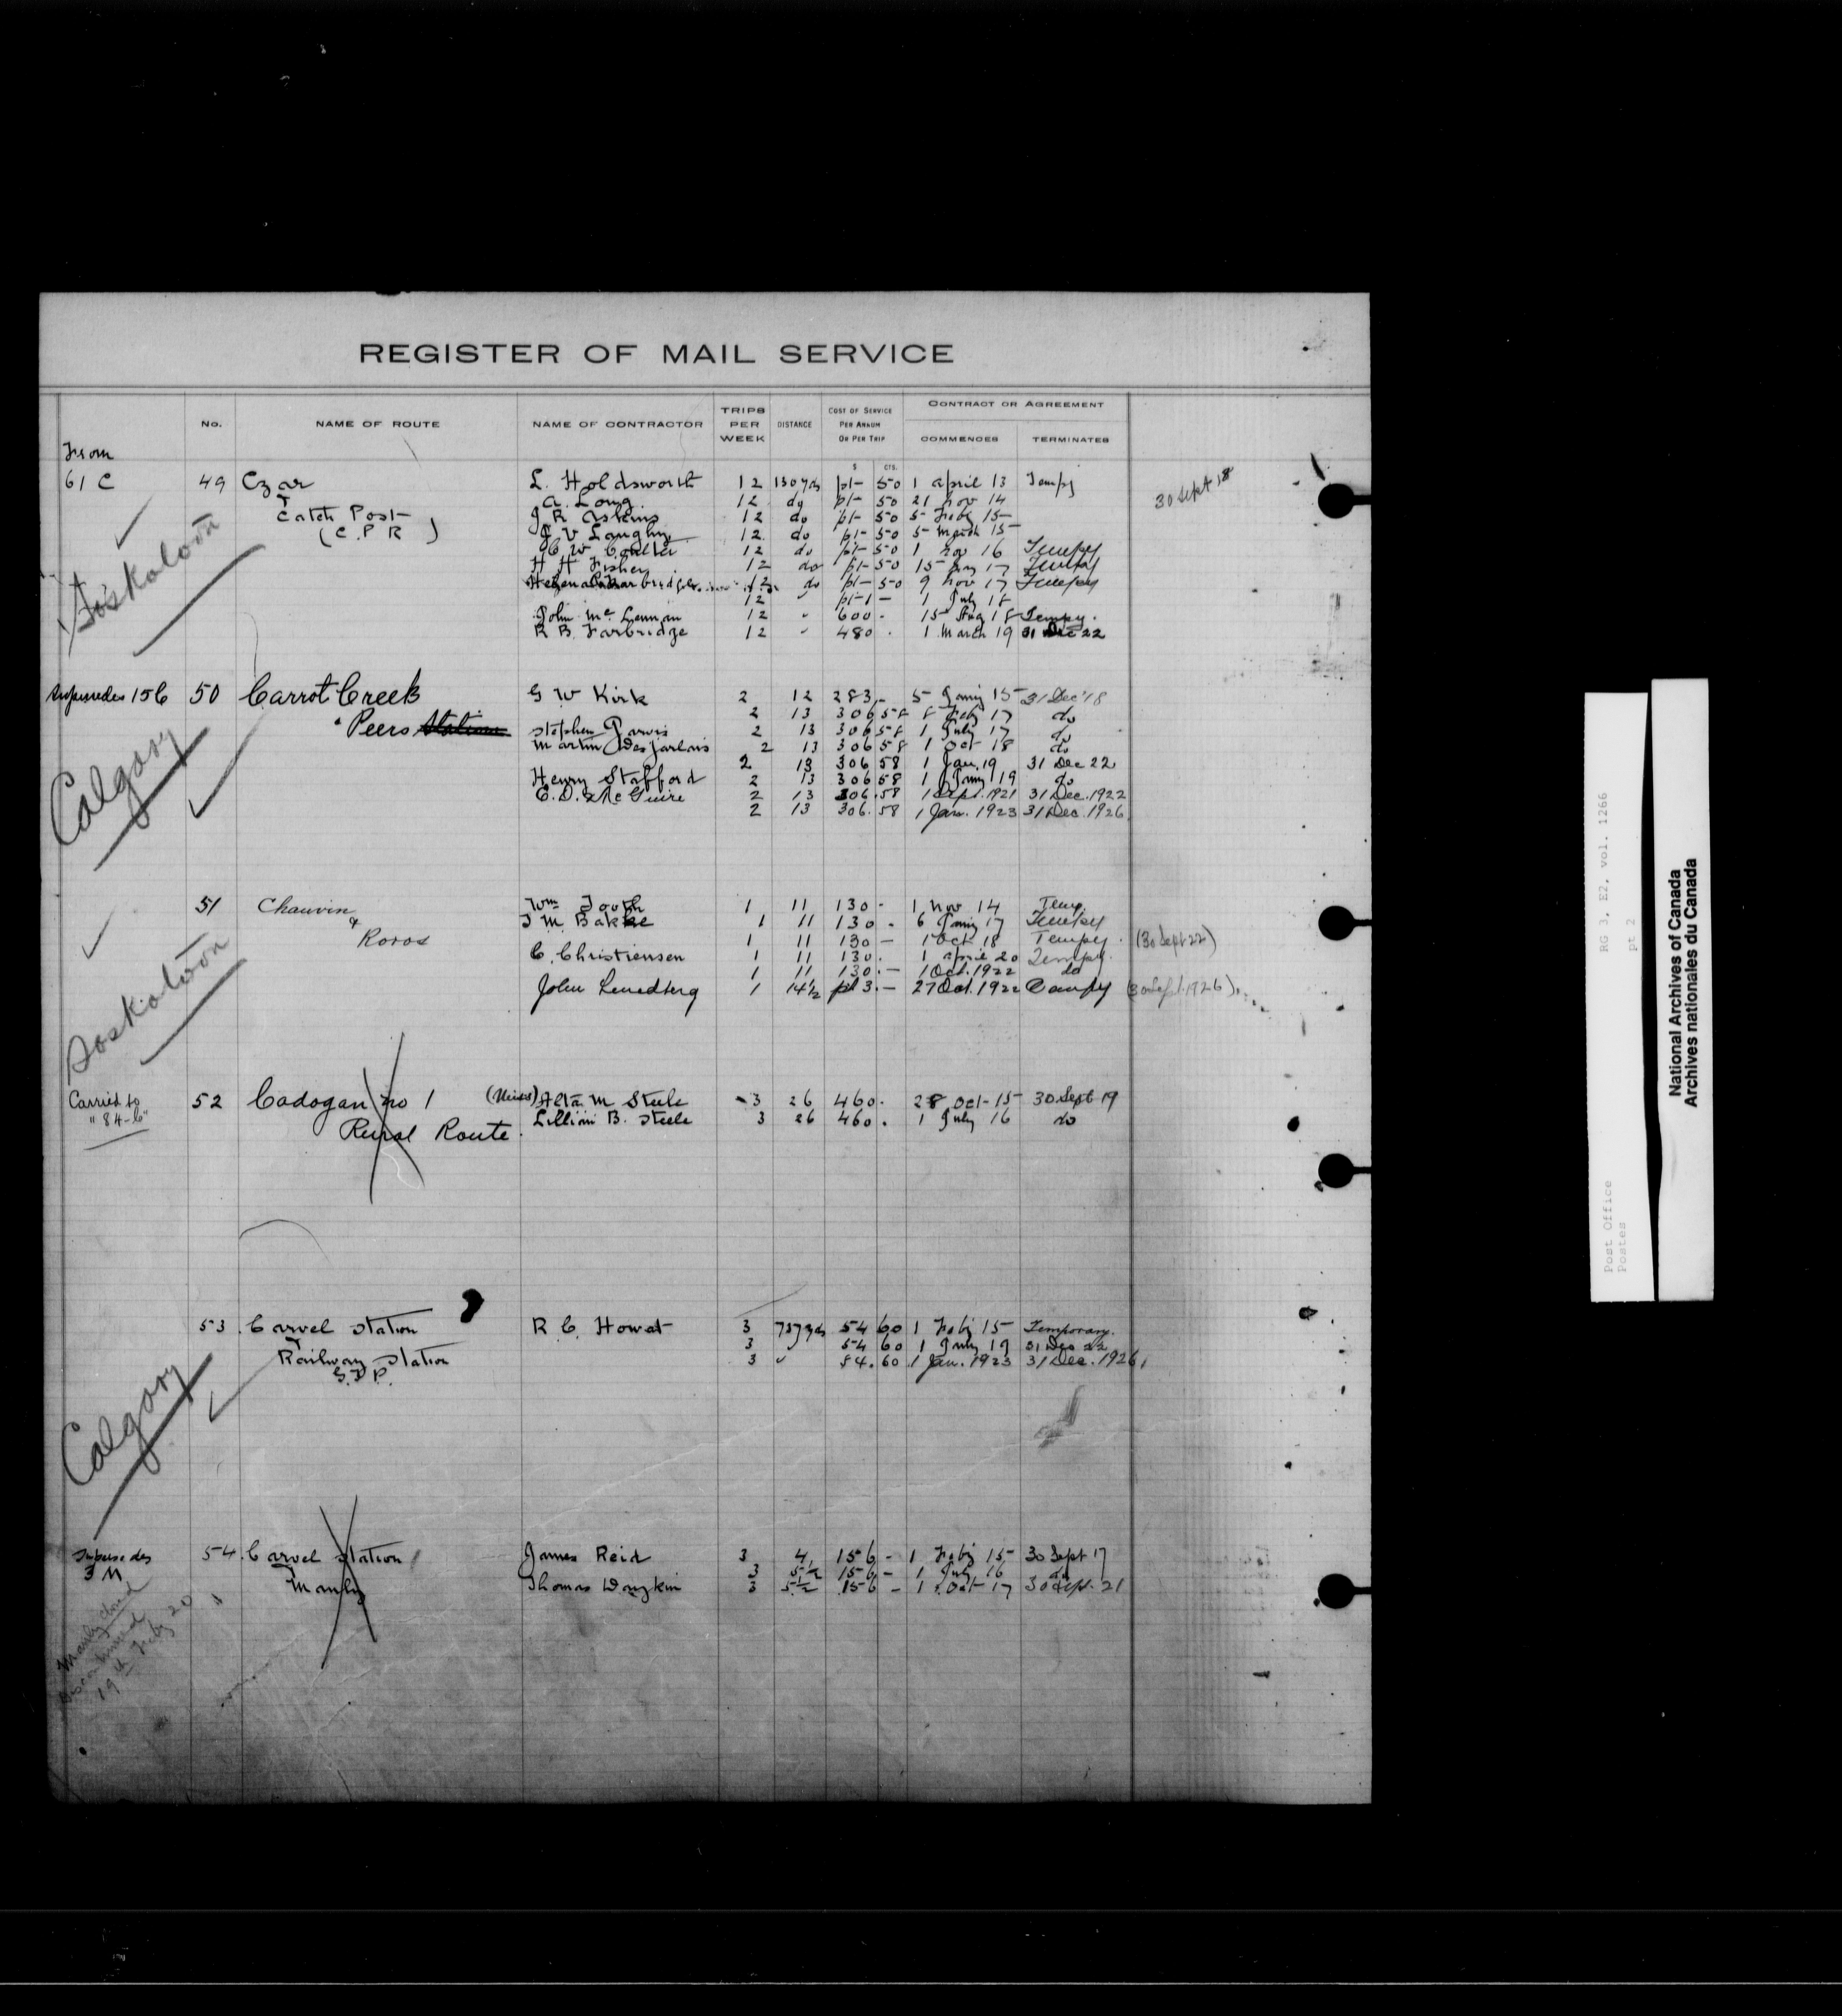 REGISTER OF MAIL SERVICE
No. NAME OF ROUTE NAME OF CONTRACTOR TRIPS PER WEEK DISTANCE COST OF SERVICE PER ANNUM OR PER TRIP CONTRACT OR AGREEMENT COMMENCES TERMINATES
$ cts.
From
61 C 49 Czar L. Holdsworth 12 130 yds pt- 50 1 April 13 Tempy 30 Sept 18
& A. Long 12 do pt- 50 21 Nov 14
Catch Post J R Askins 12 do pt- 50 5 Feby 15
(C.P.R) J V Laughy 12 do pt- 50 5 March 15
C W Coulter 12 do pt- 50 1 Nov 16 Tempy
H H Fisher 12 do pt- 50 15 17 Tempy
12 do pt- 50 9 Nov 17 Tempy
12 " pt-1 - 1 July 18
John McLennan 12 " 600 - 15 Aug 18 Tempy.
R B Farbridge 12 " 480 . 1 March 19 31 Dec 22
Saskatoon
Supersedes 156 50 Carrot Creek G W Kirk 2 12 283 - 5 Jany 15 31 Dec '18
2 13 306 58 8 Feby 17 do
& Peers Station Stephen Jarvis 2 13 306 58 1 July 17 do
Martin Desjarlais 2 13 306 58 1 Oct 18 do
2 13 306 58 1 Jan. 19 31 Dec 22
Henry Stafford 2 13 306 58 1 Jany 19 do
C. D. McGuire 2 13 306.58 1 Sept. 1921 31 Dec. 1922
2 13 306.58 1 Jan. 1923 31 Dec. 1926
Calgary
51 Chauvin Wm Tooth 1 11 130 - 1 Nov 14 Temp.
& T M Bakke 1 11 130 - 6 Jany 17 Tempy
Roros 1 11 130 - 1 Oct 18 Tempy. (30 Sept 22)
C. Christiensen 1 11 130. 1 April 20 Tempy.
1 11 130.- 1 Oct. 1922 do
John 1 14½ pt 3.- 27 Oct. 1922 Tempy (30 Sept. 1926)
Saskatoon
Carried to 52 Cadogan no 1 Alta M Steele 3 26 460. 28 Oct- 15 30 Sept 19
"84-C" Rural Route Lillian B. Steele 3 26 460. 1 July 16 do
53 Carvel Station R C. Howat 3 757 yds 54 60 1 Feby 15 Temporary.
& 3 54 60 1 July 19 31 Dec 22
Railway Station 3 " 54.60 1 Jan. 1923 31 Dec. 1926
G.T.P.
Calgary
Supersedes 54 Carvel Station James Reid 3 4 156 - 1 Feby 15 30 Sept 17
3 M & 3 5½ 156 - 1 July 16 do
Manly Thomas 3 5½ 156 - 1 Oct 17 30 Sept. 21
Manly closed
Discontinued
19th Feby 20
RG 3, E2, vol. 1266
pt 2
Post Office
Postes
National Archives of Canada
Archives nationales du Canada